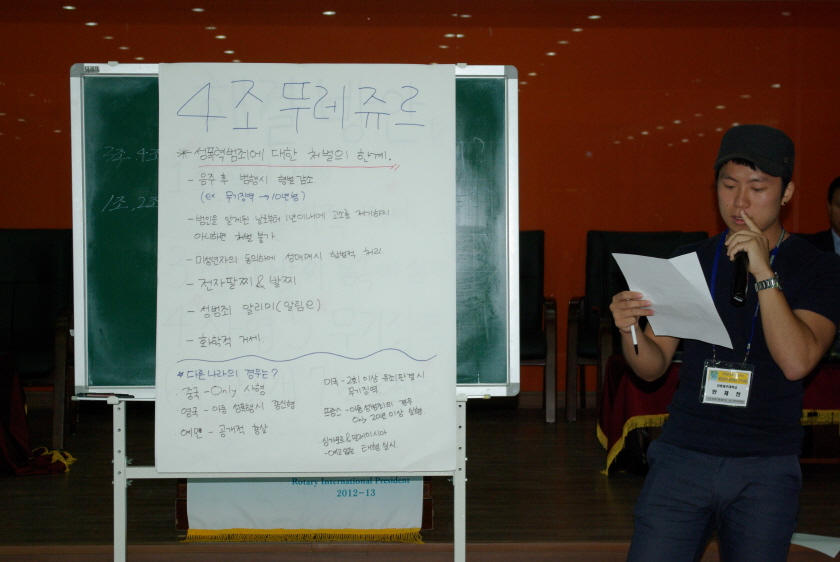 4조 뚜레쥬르
* 성폭력범죄에 대한 처벌의 한계.
- 음주 후 범행시 형벌감소
(ex 무기징역 → 10년형)
- 범인을 알게된 날로부터 1년 이내에 고소를 제기하지
아니하면 처벌 불가
- 미성년자의 동의하에 성매매시 합법적 처리
- 전자팔찌 & 발찌
- 성범죄 알리미 (알림e)
- 화학적 거세
* 다른나라의 경우는?
중국 - Only 사형
영국 - 아동 성폭행시 종신형
예멘 - 공개적 총살
미국 - 2회 이상 유죄판결시
무기징역
프랑스 - 아동성범죄의 경우
Only 20년 이상 실형
싱가포르 & 말레이시아
- 예고없는 태형 실시
Rotary International President
2012-13